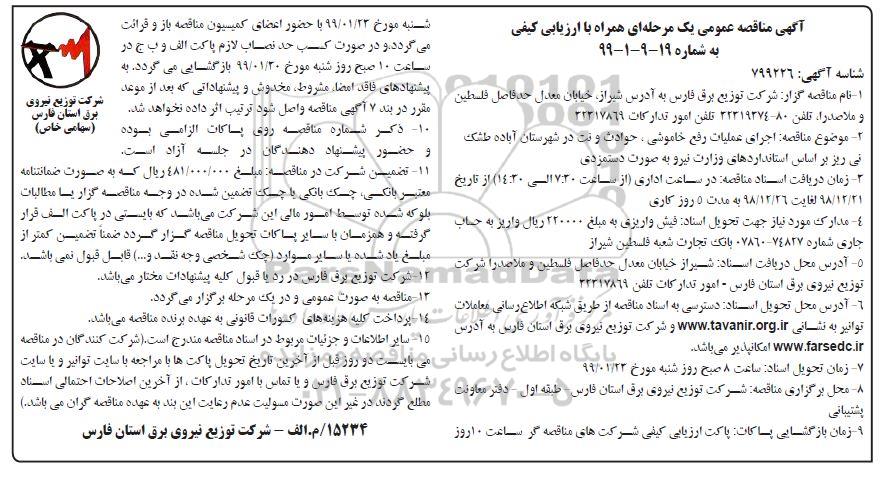 آگهی مناقصه عمومی یک مرحله‌ای همراه با ارزیابی کیفی
به شماره ۱۹-۹-۱-۹۹
شناسه آگهی: ۷۹۹۲۲۶
۱-نام مناقصه گزار: شرکت توزیع برق فارس به آدرس شیراز، خیابان معدل حدفاصل فلسطین
و ملاصدرا، تلفن ۸۰-۲۲۳۱۹۲۷۴ تلفن امور تدارکات ۲۲۳۱۷۸۶۹
۲-موضوع مناقصه: اجرای عملیات رفع خاموشی ، حوادث و نت در شهرستان آباده طشک
نی ریز بر اساس استانداردهای وزارت نیرو به صورت دستمزدی
۳-زمان دریافت اسناد مناقصه: در ساعت اداری (از ساعت ۷:۳۰ الی ۱۴:۳۰) از تاریخ
۹۸/۱۲/۲۱ لغایت ۹۸/۱۲/۲۶ به مدت ۵ روز کاری
۴- مدارک مورد نیاز جهت تحویل اسناد: فیش واریزی به مبلغ ۲۲۰۰۰۰ ریال واریز به حساب
جاری شماره ۷۴۸۲۷-۰۷۸۶۰ بانک تجارت شعبه فلسطین شیراز
۵- آدرس محل دریافت اسناد: شیراز خیابان معدل حدفاصل فلسطین و ملاصدرا شرکت
توزیع نیروی برق استان فارس - امور تدارکات تلفن ۲۲۳۱۷۸۶۹
۶- آدرس محل تحویل اسناد: دسترسی به اسناد مناقصه از طریق شبکه اطلاع‌رسانی معاملات
توانیر به نشانی www.tavanir.org.ir و شرکت توزیع نیروی برق استان فارس به آدرس
www.farsedc.ir امکانپذیر می‌باشد.
۷- زمان تحویل اسناد: ساعت ۸ صبح روز شنبه مورخ ۹۹/۰۱/۲۳
۸- محل برگزاری مناقصه: شرکت توزیع نیروی برق استان فارس- طبقه اول - دفتر معاونت
پشتیبانی
۹-زمان بازگشایی پاکات: پاکت ارزیابی کیفی شرکت های مناقصه گر ساعت ۱۰روز
شنبه مورخ ۹۹/۰۱/۲۳ با حضور اعضای کمیسیون مناقصه باز و قرائت
می‌گردد.و در صورت کسب حد نصاب لازم پاکت الف و ب ج در
ساعت ۱۰ صبح روز شنبه مورخ ۹۹/۰۱/۳۰ بازگشایی می گردد. به
پیشنهادهای فاقد امضا، مشروط، مخدوش و پیشنهاداتی که بعد از موعد
مقرر در بند ۷ آگهی مناقصه واصل شود ترتیب اثر داده نخواهد شد.
۱۰- ذکر شماره مناقصه روی پاکات الزامی بوده
و حضور پیشنهاد دهندگان در جلسه آزاد است.
۱۱- تضمین شرکت در مناقصه: مبلغ ۴۸۱/۰۰۰/۰۰۰ ریال که به صورت ضمانتنامه
معتبر بانکی، چک بانکی یا چک تضمین شده در وجه مناقصه گزار یا مطالبات
بلوکه شده توسط امور مالی این شرکت می‌باشد که بایستی در پاکت الف قرار
گرفته و همزمان با سایر پاکات تحویل مناقصه گزار گردد ضمناً تضمین کمتر از
مبلغ یاد شده یا سایر موارد (چک شخصی وجه نقد و...) قابل قبول نمی باشد.
۱۲-شرکت توزیع برق فارس در رد یا قبول کلیه پیشنهادات مختار می‌باشد.
۱۳-مناقصه به صورت عمومی و در یک مرحله برگزار می‌گردد.
۱۴-پرداخت کلیه هزینه‌های کسورات قانونی به عهده برنده مناقصه می‌باشد.
۱۵- سایر اطلاعات و جزئیات مربوط در اسناد مناقصه مندرج است.(شرکت کنندگان در مناقصه
می بایست دو روز قبل از آخرین تاریخ تحویل پاکت ها با مراجعه با سایت توانیر و یا سایت
شرکت توزیع برق فارس و یا تماس با امور تدارکات ، از آخرین اصلاحات احتمالی اسناد
مطلع گردند در غیر این صورت مسولیت عدم رعایت این بند به عهده مناقصه گران می باشد.)
۱۵۲۳۴/م.الف - شرکت توزیع نیروی برق استان فارس
شرکت توزیع نیروی
برق استان فارس
(سهامی خاص)
ParsNamadData
پایگاه اطلاع رسانی مناقصه و مزایده
۰۲۱-۸۸۳۴۹۶۷۰-۵